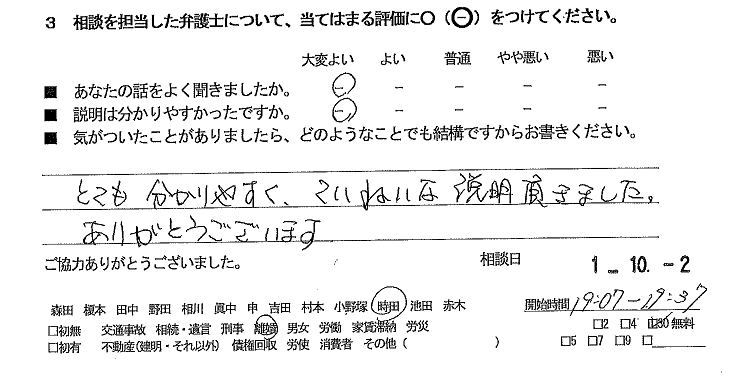 3 相談を担当した弁護士について、当てはまる評価に○(⊖)をつけてください。
大変よい よい 普通 やや悪い 悪い
■ あなたの話をよく聞きましたか。 － － － － －
■ 説明は分かりやすかったですか。 － － － － －
■ 気がついたことがありましたら、どのようなことでも結構ですからお書きください。
とても 分かりやすく、ていねいな 説明 頂きました。
ありがとうございます
ご協力ありがとうございました。 相談日 1－10.－2
森田 榎本 田中 野田 相川 眞中 申 吉田 村本 小野塚 時田 池田 赤木 開始時間 19:07－19:37
□初無 交通事故 相続・遺言 刑事 離婚 男女 労働 家賃滞納 労災 □2 □4 □30無料
□初有 不動産(建明・それ以外) 債権回収 労使 消費者 その他( ) □5 □7 □9 □